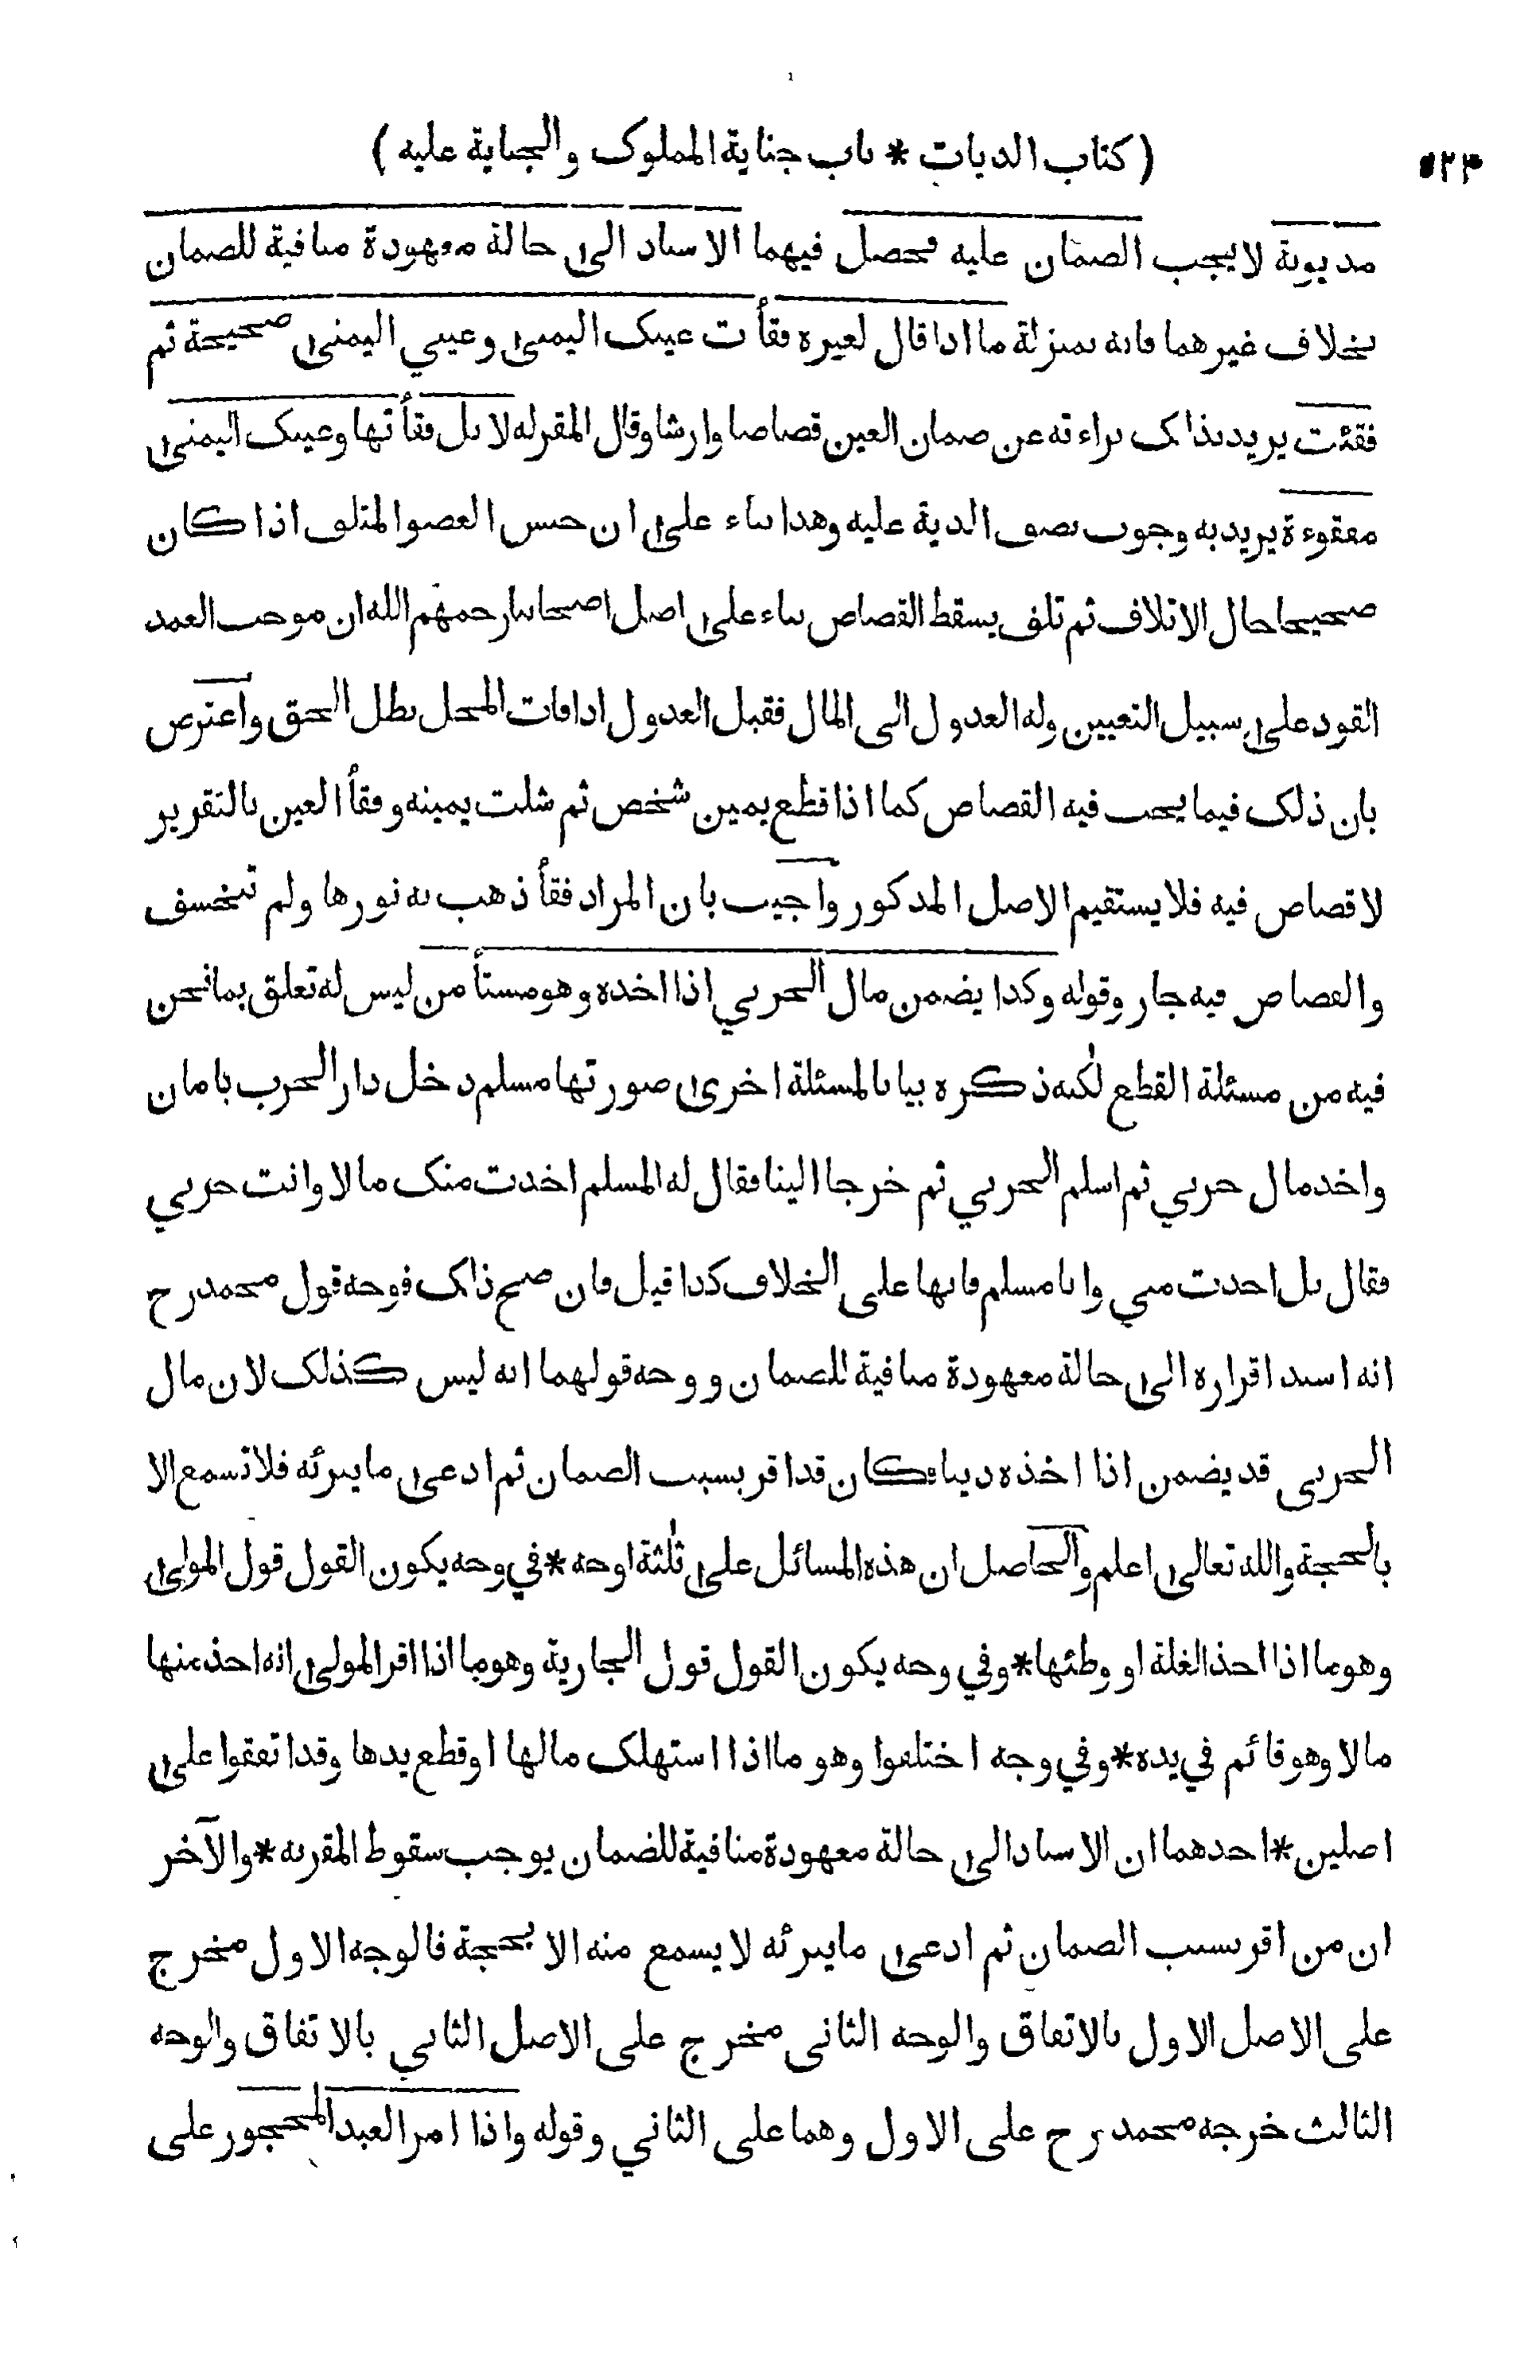 ( كتاب الديات * باب جناية المملوك والجناية عليه )
٥٢٣
مديونة لا يجب الضمان عليه فحصل فيهما الاسناد الى حالة معهودة منافية للضمان
بخلاف غيرهما فانه بمنزلة ما اذا قال لغيره فقأت عينك اليمنى وعيني اليمنى صحيحة ثم
فقئت يريد بذلك براءته عن ضمان العين قصاصا وارشا وقال المقر له لا بل فقأتها وعينك اليمنى
مفقوءة يريد به وجوب نصف الدية عليه وهذا بناء على ان جنس العضو المتلف اذا كان
صحيحا حال الاتلاف ثم تلف يسقط القصاص بناء على اصل اصحابنا رحمهم الله ان موجب العمد
القود على سبيل التعيين وله العدول الى المال فقبل العدول اذا فات المحل بطل الحق واعترض
بان ذلك فيما يجب فيه القصاص كما اذا قطع يمين شخص ثم شلت يمينه وفقأ العين بالتقرير
لا قصاص فيه فلا يستقيم الاصل المذكور واجيب بان المراد فقأ ذهب به نورها ولم تنخسف
والقصاص فيه جار وقوله وكذا يضمن مال الحربي اذا اخذه وهو مستأمن ليس له تعلق بما نحن
فيه من مسئلة القطع لكنه ذكره بيانا لمسئلة اخرى صورتها مسلم دخل دار الحرب بامان
واخذ مال حربي ثم اسلم الحربي ثم خرجا الينا فقال له المسلم اخذت منك مالا وانت حربي
فقال بل اخذت مني وانا مسلم فانها على الخلاف كذا قيل فان صح ذلك فوجه قول محمد رح
انه اسند اقراره الى حالة معهودة منافية للضمان ووجه قولهما انه ليس كذلك لان مال
الحربي قد يضمن اذا اخذه دينا فكان قد اقر بسبب الضمان ثم ادعى ما يبرئه فلا تسمع الا
بالحجة والله تعالى اعلم والحاصل ان هذه المسائل على ثلثة اوجه * في وجه يكون القول قول المولى
وهو ما اذا اخذ الغلة او وطئها * وفي وجه يكون القول قول الجارية وهو ما اذا اقر المولى انه اخذ منها
مالا وهو قائم في يده * وفي وجه اختلفوا وهو ما اذا استهلك مالها او قطع يدها وقد اتفقوا على
اصلين * احدهما ان الاسناد الى حالة معهودة منافية للضمان يوجب سقوط المقر به * والآخر
ان من اقر بسبب الضمان ثم ادعى ما يبرئه لا يسمع منه الا بحجة فالوجه الاول مخرج
على الاصل الاول بالاتفاق والوجه الثاني مخرج على الاصل الثاني بالاتفاق والوجه
الثالث خرجه محمد رح على الاول وهما على الثاني وقوله واذا امر العبد المحجور على